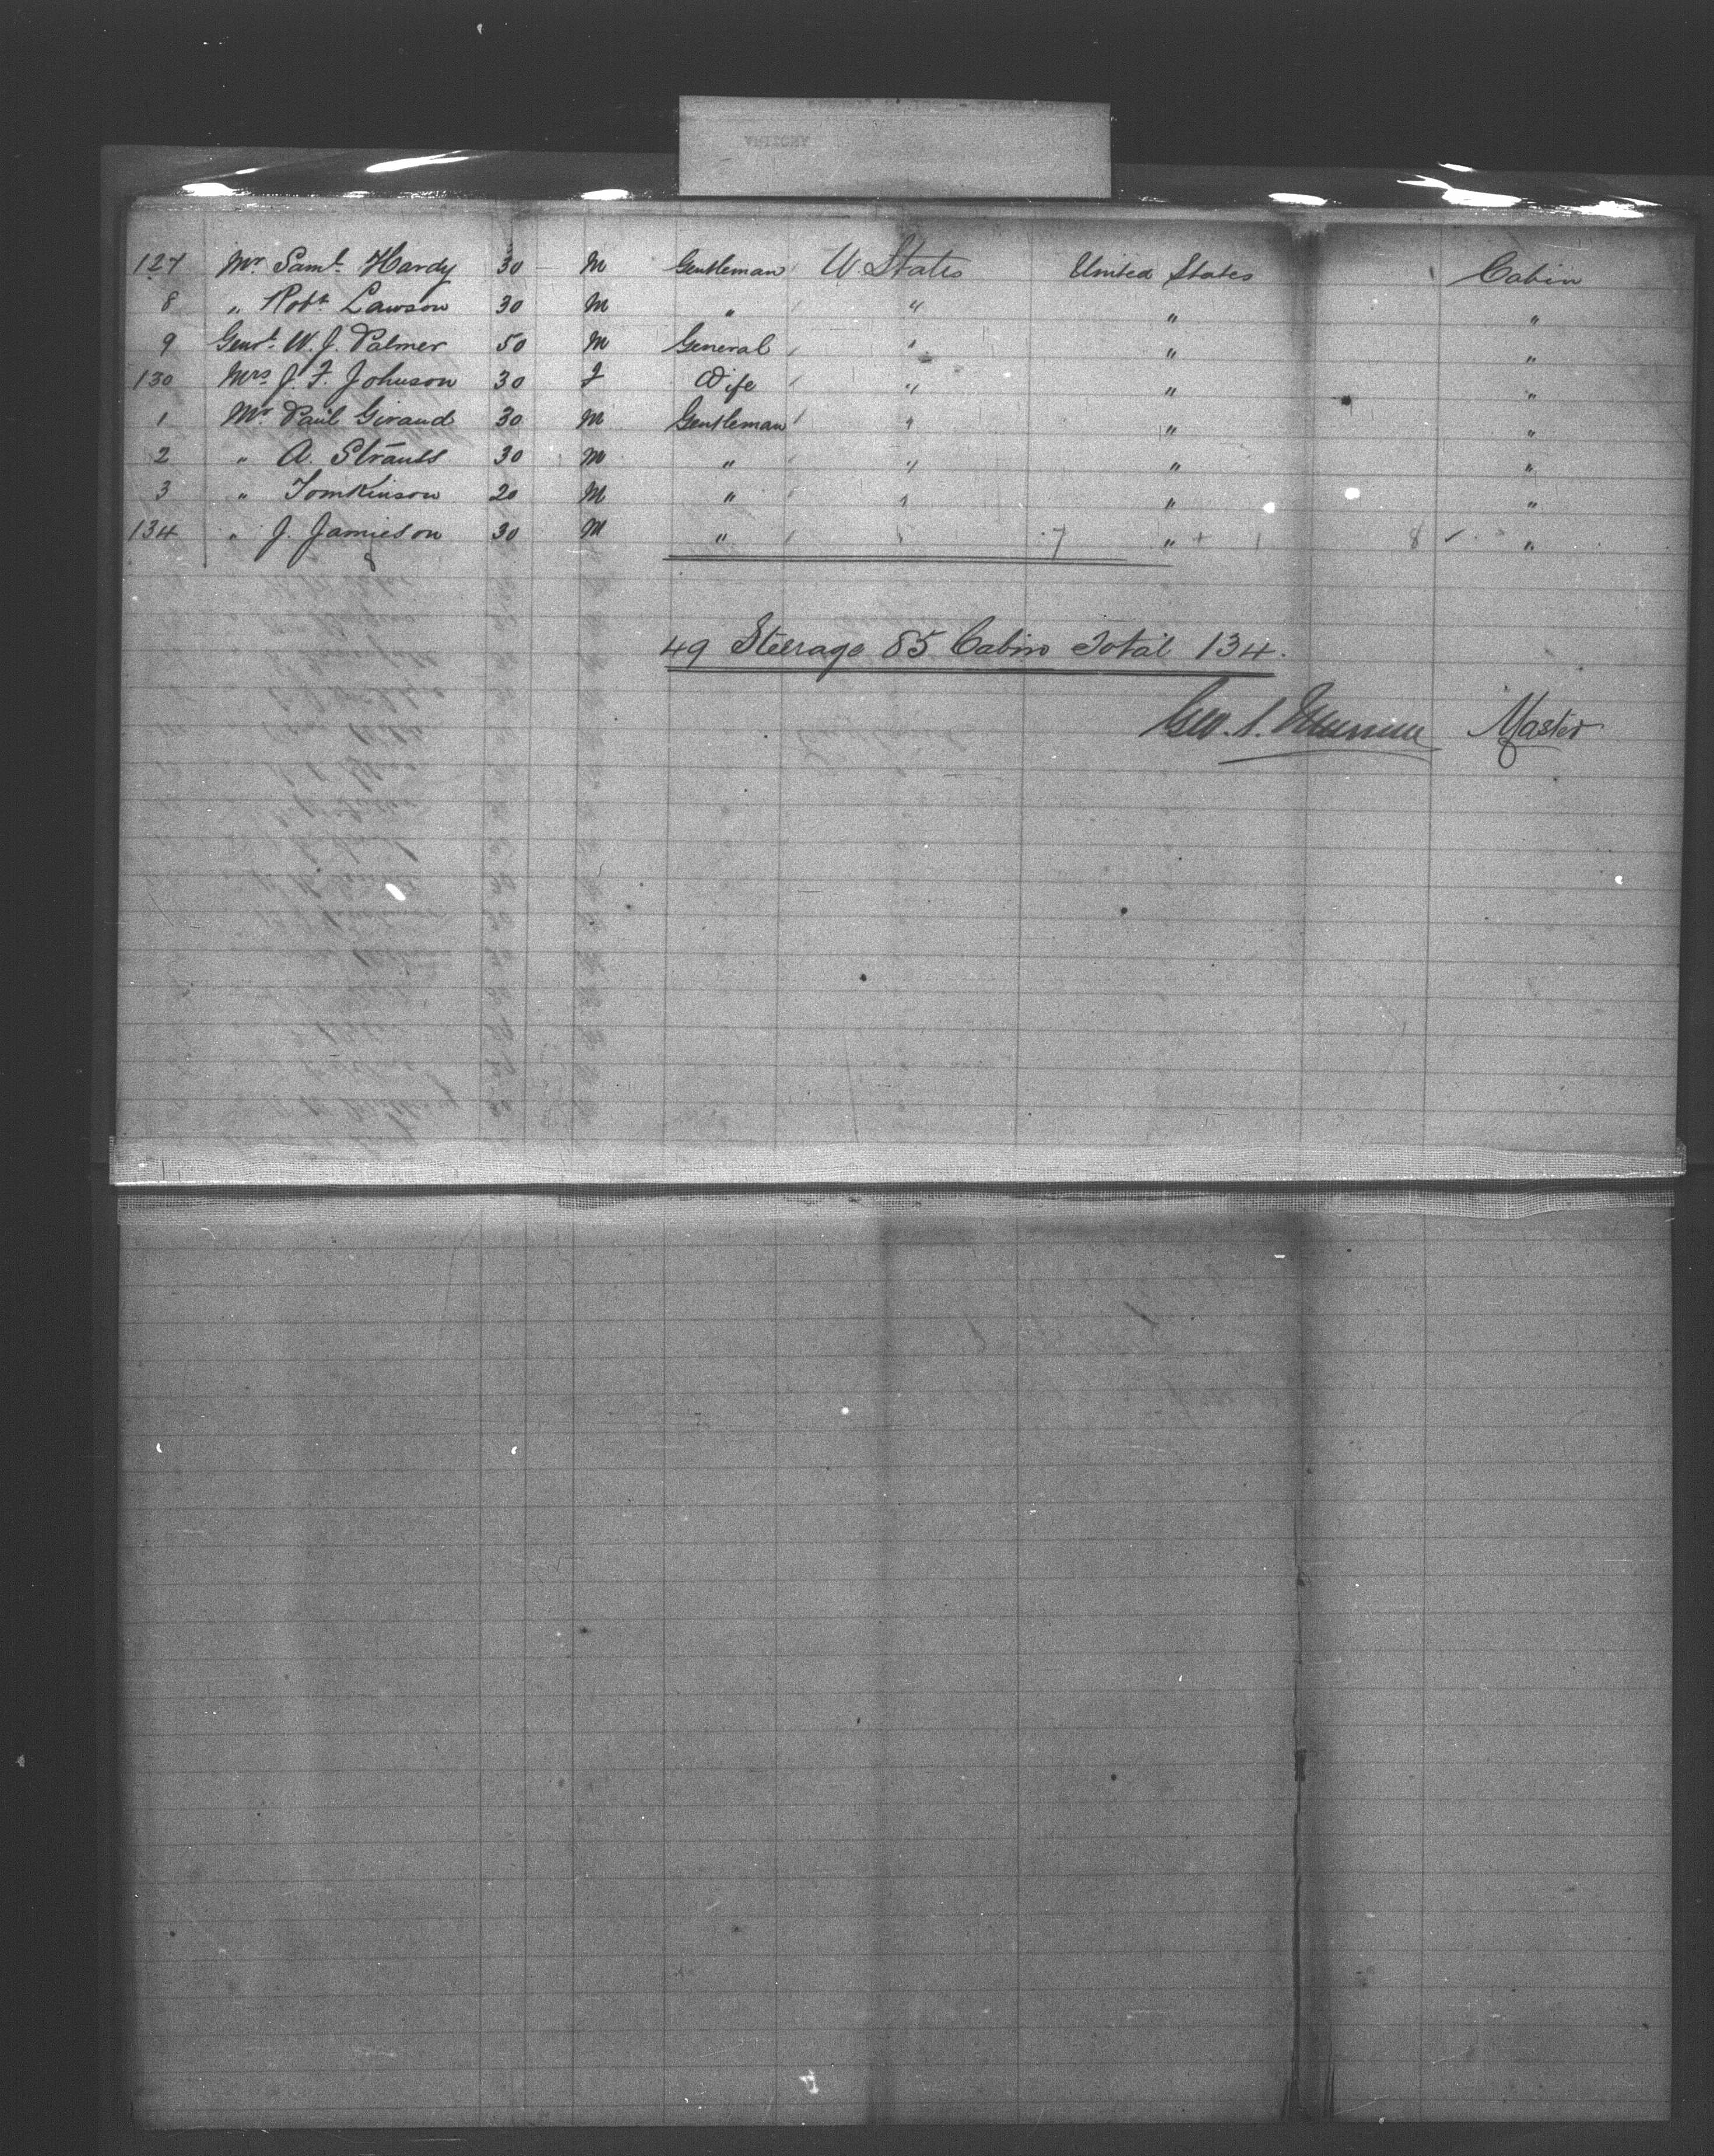 127 Mr. Saml. Hardy 30 M Gentleman U. States United States Cabin
8 " Robt. Lawson 30 M " " " "
9 Genl. W. J. Palmer 50 M General " " "
130 Mrs J. F. Johnson 30 F Wife " " "
1 Mr. Paul Giraud 30 M Gentleman " " "
2 " A. Strauss 30 M " " " "
3 " Tomkinson 20 M " " " "
134 " J. Jamieson 30 M " " 7 " + 1 8 "
49 Steerage 85 Cabin Total 134.
Geo. S. Master